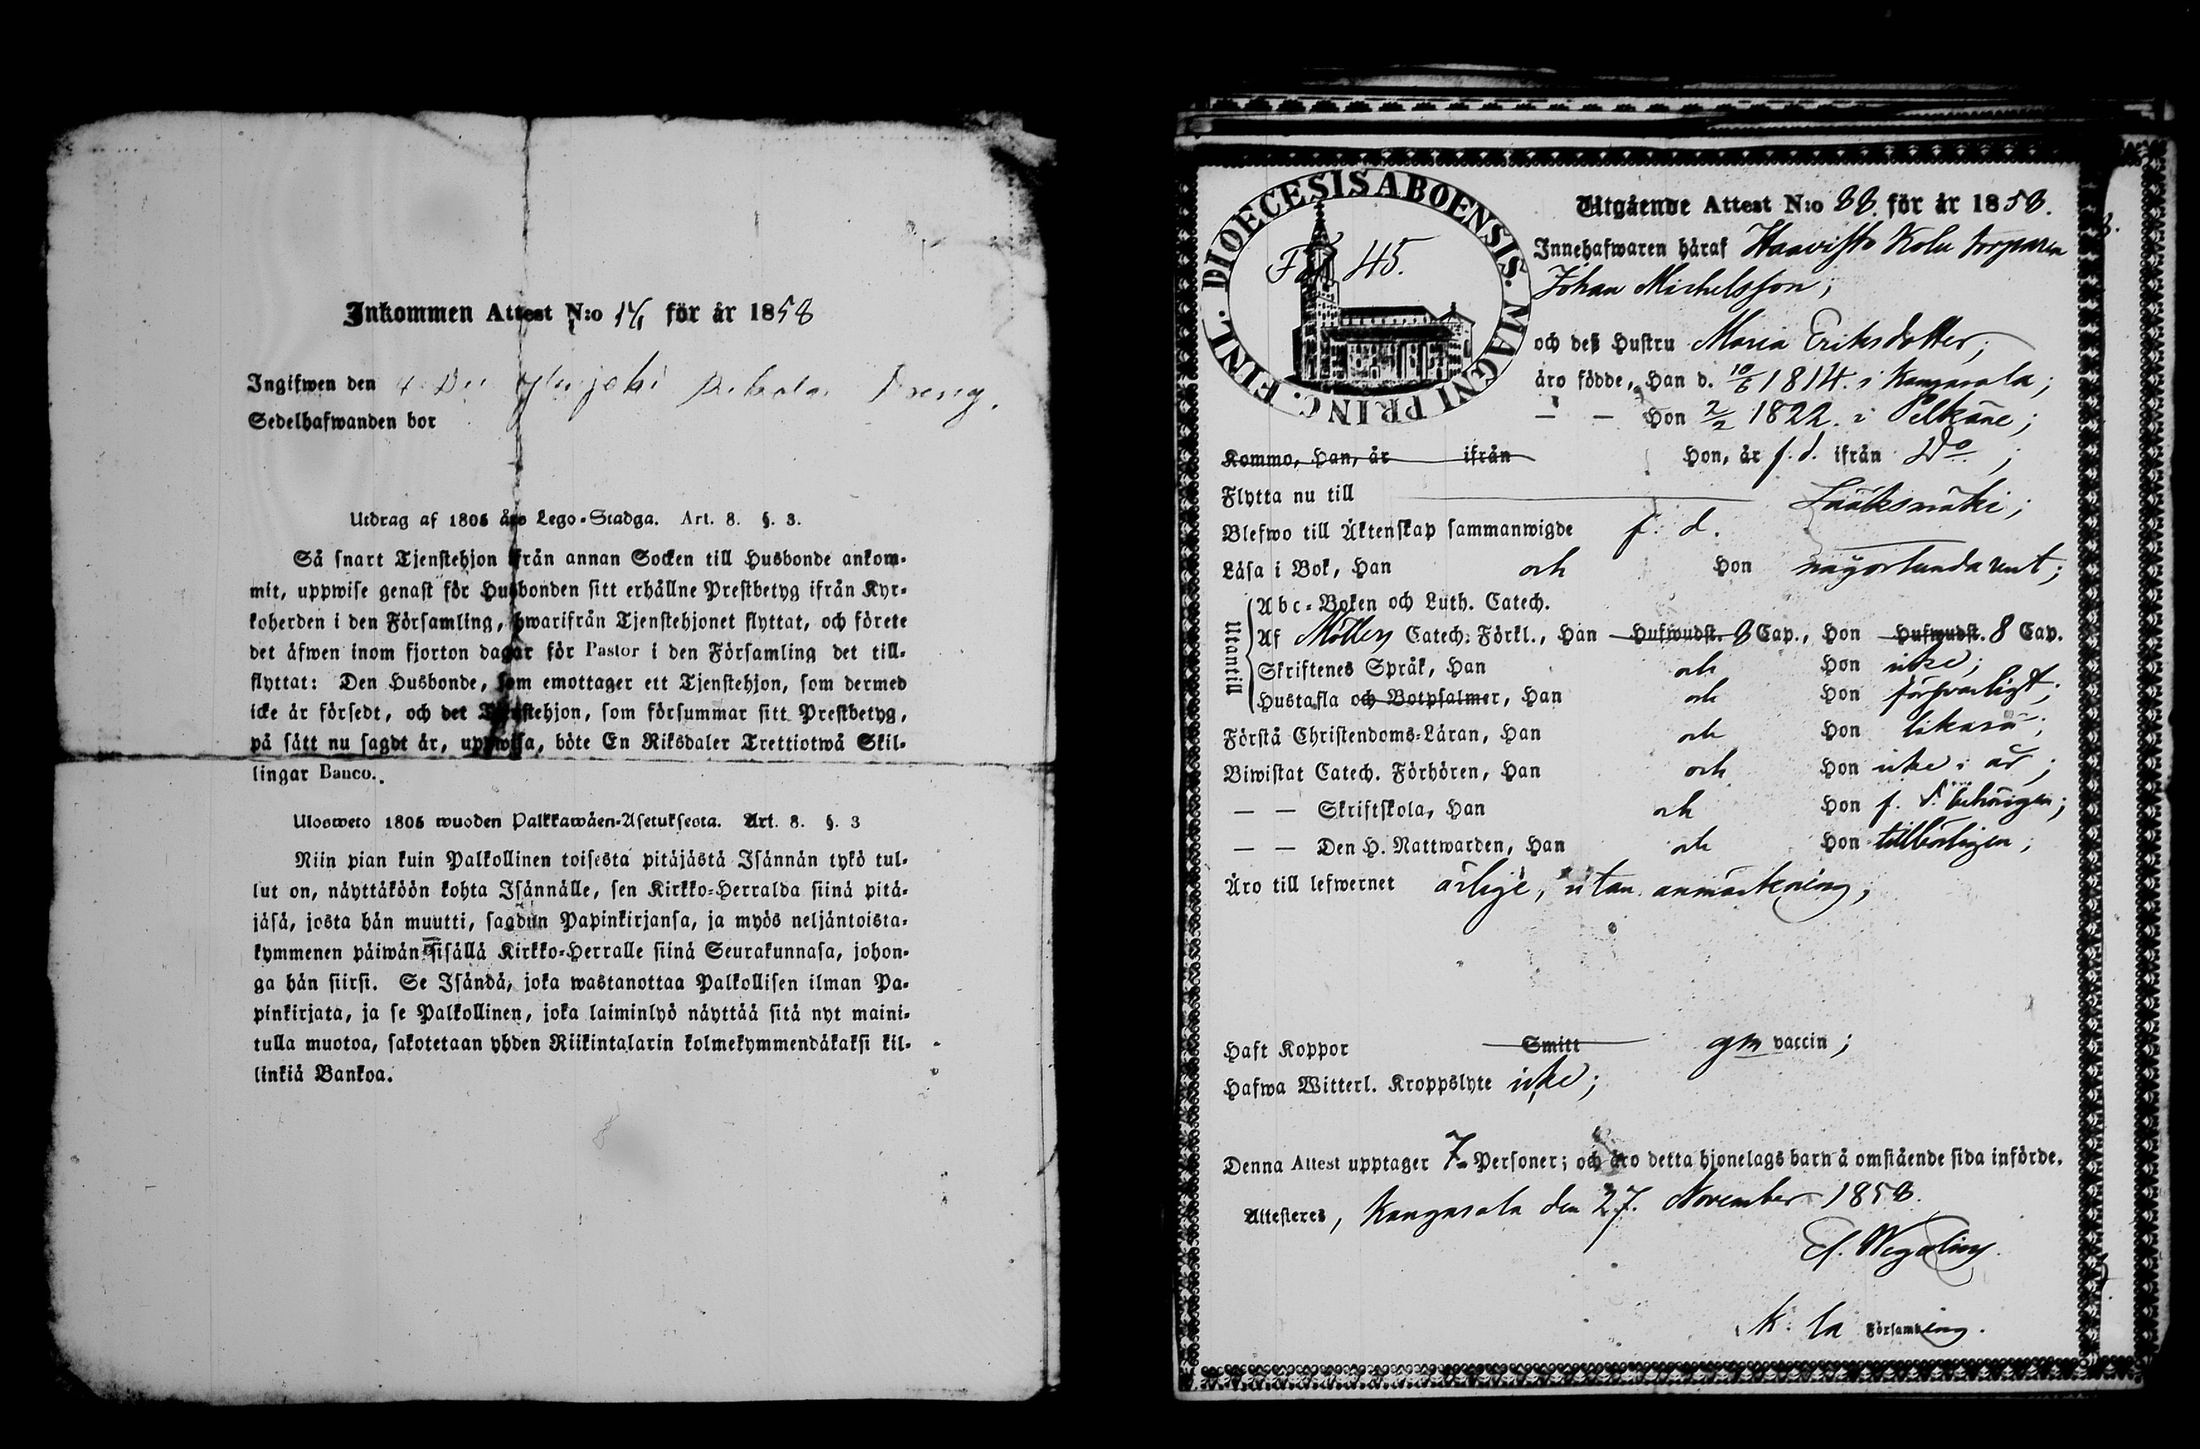 Inkommen Attest N:o för år 1858
Ingifwen den
Sedelhafwanden bor
Utdrag af 1805 års Lego-Stadga. Art. 8. §. 3.
Så snart Tjenstehjon ifrån annan Socken till Husbonde ankom-
mit, uppwise genast för Husbonden sitt erhållne Prestbetyg ifrån Kyr-
koherden i den Församling, hwarifrån Tjenstehjonet flyttat, och förete
det äfwen inom fjorton dagar för Pastor i den Församling det till-
flyttat: Den Husbonde, som emottager ett Tjenstehjon, som dermed
icke är försedt, och det Tjenstehjon, som försummar sitt Prestbetyg,
på sätt nu sagdt är, uppwisa, böte En Riksdaler Trettiotwå Skil-
lingar Banco.
Ulosweto 1805 wuoden Palkkawäen-Asetuksesta. Art. 8. §. 3
Niin pian kuin Palkollinen toisesta pitäjästä Isännän tykö tul-
lut on, näyttäköön kohta Isännälle, sen Kirkko-Herralda siinä pitä-
jäsä, josta hän muutti, sagdun Papinkirjansa, ja myös neljäntoista-
kymmenen päiwän sisällä Kirkko-Herralle siinä Seurakunnasa, johon-
ga hän siirsi. Se Isändä, joka wastanottaa Palkollisen ilman Pa-
pinkirjata, ja se Palkollinen, joka laiminlyö näyttää sitä nyt maini-
tulla muotoa, sakotetaan yhden Riikintalarin kolmekymmendäkaksi kil-
linkiä Bankoa.
DIOECESIS ABOENSIS. MAGNI PRINC. FINL.
45.
Utgående Attest N:o 88. för år 1858.
Innehafwaren häraf Haavisto Kolu torparen
Johan Michelsson;
och deß Hustru Maria Eriksdotter;
äro födde, Han d. 10/6 1814. i Kangasala;
— — Hon 2/2 1822. i Pelkäne;
Kommo, Han, år ifrån Hon, år f. d. ifrån Do;
Flytta nu till Sääksmäki;
Blefwo till Äktenskap sammanwigde f. d.
Läsa i Bok, Han och Hon någorlunda rent;
Utantill
Abc-Boken och Luth. Catech.
Af Möllers Catech: Förkl., Han Hufwudst. 8 Cap., Hon Hufwudst. 8 Cap.
Skriftenes Språk, Han och Hon icke;
Hustafla och Botpsalmer, Han och Hon försvarligt;
Förstå Christendoms-Läran, Han och Hon likaså;
Biwistat Catech. Förhören, Han och Hon icke i år;
— — Skriftskola, Han och Hon f. d. behörigen;
— — Den H. Nattwarden, Han och Hon tillbörligen;
Äro till lefwernet ärlige, utan anmärkning;
Haft Koppor Smitt gm vaccin;
Hafwa Witterl. Kroppslyte icke;
Denna Attest upptager 7 Personer; och äro detta hjonelags barn å omstående sida införde.
Attesteres, Kangasala den 27. November 1858.
i K:la Församling.